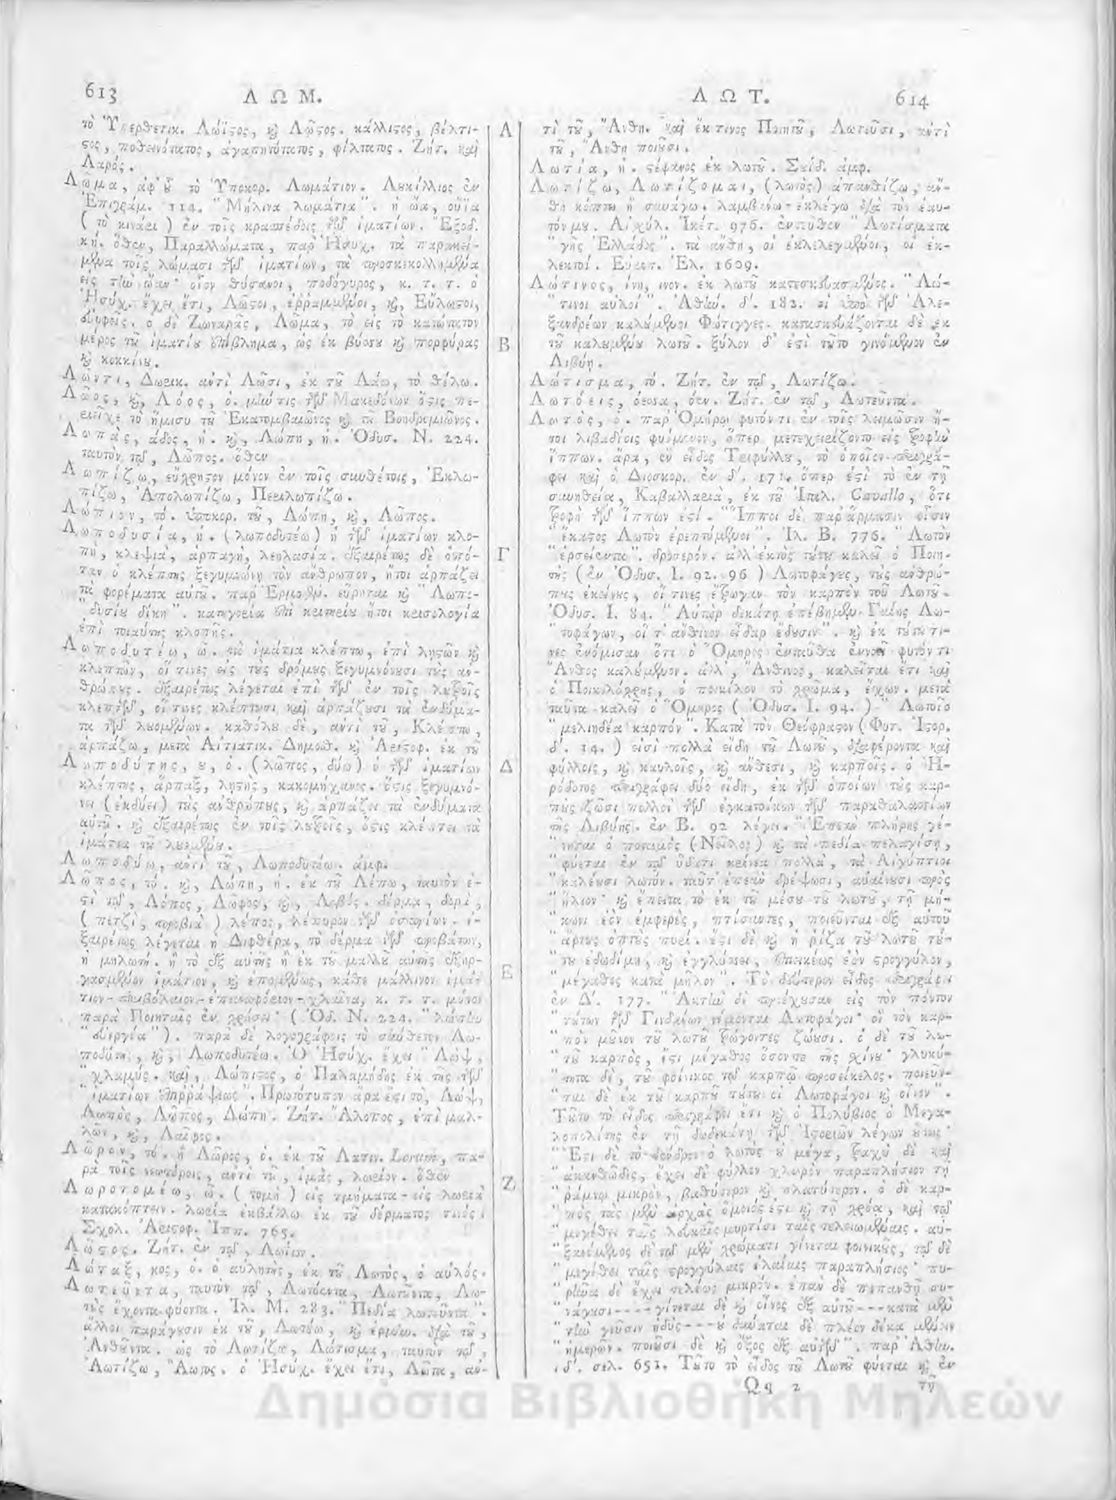 613
Λ Ω Μ.
τὸ Ὑπερθετικ. Λώϊςος, ϗ Λῶςος. κάλλιςος, βέλτι-
ςος, ποθεινότατος, ἀγαπητότατος, φίλτατος. Ζήτ. καὶ
Λαρός.
Λῶμα, ἀφ' ȣ̃ τὸ Ὑποκορ. Λωμάτιον. Λυκίλλιος ἐν
Ἐπιγράμ. 114. "Μήλινα λωμάτια". ἡ ὤα, οὔϊα
( τὸ κινάει ) ἐν τοῖς κρασπέδοις τῶν ἱματίων. Ἔξοδ.
κή. ὅθεν, Παραλλώματα, παρ' Ἡσύχ. τὰ παρακεί-
μενα τοῖς λώμασι τῶν ἱματίων, τὰ προσκεκολλημένα
εἰς τὴν ὤαν· οἷον θύσανοι, ποδόγυρος, κ. τ. τ. ὁ
Ἡσύχ. ἔχει ἔτι, Λῶςοι, ἐῤῥαμμένοι, ϗ, Εὔλωςοι,
εὐϋφεῖς. ὁ δὲ Ζωναρᾶς, Λῶμα, τὸ εἰς τὸ κατώτατον
μέρος τȣ̃ ἱματίȣ ἐπίβλημα, ὡς ἐκ βύσσȣ ϗ πορφύρας
ϗ κοκκίνȣ.
Λῶντι, Δωρικ. ἀντὶ Λῶσι, ἐκ τȣ̃ Λάω, τὸ θέλω.
Λῶος, ϗ, Λόος, ὁ. μὴν τις τῶν Μακεδόνων ὅςις πε-
ριεῖχε τὸ ἥμισυ τȣ̃ Ἑκατομβαιῶνος ϗ τȣ̃ Βοηδρομιῶνος.
Λωπὰς, άδος, ἡ. ϗ, Λώπη, ἡ. Ὀδυσ. Ν. 224.
ταυτὸν τῷ, Λῶπος. ὅθεν
Λωπίζω, εὔχρηςον μόνον ἐν τοῖς συνθέτοις, Ἐκλω-
πίζω, Ἀπολωπίζω, Περιλωπίζω.
Λώπιον, τό. ὑποκορ. τȣ̃, Λώπη, ϗ, Λῶπος.
Λωποδυσία, ἡ. ( λωποδυτέω ) ἡ τῶν ἱματίων κλο-
πὴ, κλεψιὰ, ἁρπαγὴ, λεηλασία. ἐξαιρέτως δὲ ὁπό-
ταν ὁ κλέπτης ξεγυμνώνῃ τὸν ἄνθρωπον, ἤτοι ἁρπάζει
τὰ φορέματα αὐτȣ̃. παρ' Ἑρμογέν. εὕρηται ϗ "Λωπο-
"δυσίȣ δίκη". κατηγορία ἐπὶ κριτηρίȣ ἤτοι κρισολογία
ἐπὶ τοιαύτης κλοπῆς.
Λωποδυτέω, ῶ. τὰ ἱμάτια κλέπτω, ἐπὶ λῃςῶν ϗ
κλεπτῶν, οἵ τινες εἰς τȣ̀ς δρόμȣς ξεγυμνόνȣσι τȣ̀ς ἀν-
θρώπȣς. ἐξαιρέτως λέγεται ἐπὶ τῶν ἐν τοῖς λȣτροῖς
κλεπτῶν, οἵ τινες κλέπτȣσι καὶ ἁρπάζȣσι τὰ ἐνδύμα-
τα τῶν λȣομένων. καθόλȣ δὲ, ἀντὶ τȣ̃, Κλέπτω,
ἁρπάζω, μετὰ Αἰτιατικ. Δημοσθ. ϗ Ἀριςοφ. ἐκ τȣ̃
Λωποδύτης, ȣ, ὁ. ( λῶπος, δύω ) ὁ τῶν ἱματίων
κλέπτης, ἅρπαξ, λῃςὴς, κακομήχανος. ὅςις ξεγυμνό-
νει ( ἐκδύει ) τȣ̀ς ἀνθρώπȣς, ϗ ἁρπάζει τὰ ἐνδύματα
αὐτῶν. ϗ ἐξαιρέτως ἐν τοῖς λȣτροῖς, ὅςις κλέπτει τὰ
ἱμάτια τȣ̃ λȣομένȣ.
Λωποδύω, ἀντὶ τȣ̃, Λωποδυτέω. ἀμφ.
Λῶπος, τό. ϗ, Λώπη, ἡ. ἐκ τȣ̃ Λέπω, ταυτὸν ἐ-
ςὶ τῷ, Λόπος, Λῶφος, ϗ, Λοβός. δέρμα, δορὰ,
( πετζὶ, προβιὰ ) λέπος, λέπυρον τῶν ὀσπρίων. ἐ-
ξαιρέτως λέγεται ἡ Διφθέρα, τὸ δέρμα τῶν προβάτων,
ἡ μηλωτή. ἢ τὸ ἐξ αὐτῆς ἢ ἐκ τȣ̃ μαλλȣ̃ αὐτῆς ἐξειρ-
γασμένον ἱμάτιον, ϗ ἑπομένως, κάθε μάλλινον ἱμά-
τιον - περιβόλαιον - ἐπανωφόριον - χλαῖνα, κ. τ. τ. μόνον
παρὰ Ποιηταῖς ἐν χρήσει· ( Ὀδ. Ν. 224. "λώπην
"εὐεργέα" ). παρὰ δὲ λογογράφοις τὸ σύνθετον Λω-
ποδύτης, ϗ, Λωποδυτέω. Ὁ Ἡσύχ. ἔχει "Λὼψ,
"χλαμύς. καὶ, Λώπιςος, ὁ Παλαμήδης ἐκ τῆς τῶν
"ἱματίων ἐπιῤῥάψεως". Πρωτότυπον ἄρα ἐςὶ τὸ, Λὼψ,
Λωπὸς, Λῶπος, Λώπη. Ζήτ. Ἄλοπος, ἐπὶ μαλ-
λῶν, ϗ, Λαῖφος.
Λῶρον, τό. ἢ Λῶρος, ὁ. ἐκ τȣ̃ Λατιν. Lorum, πα-
ρὰ τοῖς νεωτέροις, ἀντὶ τȣ̃, ἱμὰς, λωρίον. ὅθεν
Λωροτομέω, ῶ. ( τομὴ ) εἰς τμήματα - εἰς λωρία
κατακόπτειν. λωρία ἐκβάλλω ἐκ τȣ̃ δέρματος τινός·
Σχολ. Ἀριςοφ. Ἱππ. 765.
Λῶςος. Ζήτ. ἐν τῷ, Λωίων.
Λώταξ, κος, ὁ. ὁ αὐλητὴς, ἐκ τȣ̃ Λωτὸς, ὁ αὐλός.
Λωτεῦντα, ταυτὸν τῷ, Λωτόεντα, Λωτȣ̃ντα, Λω-
τȣ̀ς ἔχοντα - φύοντα. Ἰλ. Μ. 283. "Πεδία λωτεῦντα".
ἄλλοι παράγȣσιν ἐκ τȣ̃, Λωτέω, ϗ ἑρμίων. διὰ τȣ̃,
Ἀνθȣ̃ντα. ὡς τὸ Λωτίζω, Λώτισμα, ταυτὸν τῷ,
Ἀωτίζω, Ἄωτος. ὁ Ἡσύχ. ἔχει ἔτι, Λῶτα, ἀν-
Α
Β
Γ
Δ
Ε
Ζ
Λ Ω Τ.
614
τὶ τȣ̃, Ἄνθη. καὶ ἔκ τινος Ποιητȣ̃, Λωτεῦσι, ἀντὶ
τȣ̃, Ἄνθη ποιȣ̃σι.
Λωτία, ἡ. ςέφανος ἐκ λωτȣ̃. Σȣΐδ. ἀμφ.
Λωτίζω, Λωτίζομαι, (λωτὸς) ἀπανθίζω, ἄν-
θη κόπτω ἢ συνάγω. λαμβάνω - ἐκλέγω διὰ τὸν ἑαυ-
τόν μȣ. Αἰχύλ. Ἱκέτ. 976. ἐντεῦθεν "Λωτίσματα
"γῆς Ἑλλάδος". τὰ ἄνθη, οἱ ἐκλελεγμένοι, οἱ ἐκ-
λεκτοί. Εὐριπ. Ἑλ. 1609.
Λώτινος, ίνη, ινον. ἐκ λωτȣ̃ κατεσκευασμένος. "Λώ-
"τινοι αὐλοί". Ἀθήν. δ'. 182. οἱ ὑπὸ τῶν Ἀλε-
ξανδρέων καλȣ́μενοι Φώτιγγες. κατασκευάζονται δὲ ἐκ
τȣ̃ καλȣμένȣ λωτȣ̃. ξύλον δ' ἐςὶ τȣ̃το γινόμενον ἐν
Λιβύῃ.
Λώτισμα, τό. Ζήτ. ἐν τῷ, Λωτίζω.
Λωτόεις, όεσσα, όεν. Ζήτ. ἐν τῷ, Λωτεῦντα.
Λωτὸς, ὁ. παρ' Ὁμήρῳ φυτόν τι ἐν τοῖς λειμῶσιν ἤ-
τοι λιβαδίοις φυόμενον, ὅπερ μετεχειρίζοντο εἰς τροφὴν
ἵππων. ἄρα, ἓν εἶδος Τριφύλλȣ, τὸ ὁποῖον περιγρά-
φει καὶ ὁ Διοσκορ. ἐν δ'. 171. ὅπερ ἐςὶ τὸ ἐν τῇ
συνηθείᾳ, Καβαλλαριὰ, ἐκ τȣ̃ Ἰταλ. Cavallo, ὅτι
τροφὴ τῶν ἵππων ἐςί. "Ἵπποι δὲ παρ' ἅρμασιν οἷσιν
"ἕκαςος Λωτὸν ἐρεπτόμενοι". Ἰλ. Β. 776. "Λωτὸν
"ἑρσήεντα". δροσερόν. ἀλλ' ἐκτὸς τȣ́τȣ καλεῖ ὁ Ποιη-
τὴς ( ἐν Ὀδυσ. Ι. 92. 96 ) Λωτοφάγȣς, τȣ̀ς ἀνθρώ-
πȣς ἐκείνȣς, οἵ τινες ἔτρωγαν τὸν καρπὸν τοῦ Λωτȣ̃.
Ὀδυσ. Ι. 84. "Αὐτὰρ δεκάτῃ ἐπέβημεν Γαίης Λω-
"τοφάγων, οἵ τ' ἄνθινον εἶδαρ ἔδȣσιν". ϗ ἐκ τȣ́τȣ τι-
νὲς ἐνόμισαν ὅτι ὁ Ὅμηρος ἐνταῦθα ἐννοεῖ φυτόν τι
Ἄνθος καλȣ́μενον. ἀλλ', Ἄνθινος, καλεῖται ἔτι καὶ
ὁ Ποικιλόχρȣς, ὁ ποικίλον τὸ χρῶμα, ἔχων. μετὰ
ταῦτα καλεῖ ὁ Ὅμηρος ( Ὀδυσ. Ι. 94. ) "Λωτοῖο
"μελιηδέα καρπόν". Κατὰ τὸν Θεόφραςον (Φυτ. Ἱςορ.
δ'. 14. ) εἰσὶ πολλὰ εἴδη τȣ̃ Λωτȣ̃, διαφέροντα καὶ
φύλλοις, ϗ καυλοῖς, ϗ ἄνθεσι, ϗ καρποῖς. ὁ Ἡ-
ρόδοτος περιγράφει δύο εἴδη, ἐκ τῶν ὁποίων τȣ̀ς καρ-
πȣ̀ς ζῶσι πολλοὶ τῶν ἐγκατοίκων τῶν παραθαλασσίων
τῆς Λιβύης. ἐν Β. 92 λέγει. "Ἐπεὰν πλήρης γέ-
"νηται ὁ ποταμὸς (Νεῖλος) ϗ τὰ πεδία πελαγίσῃ,
"φύεται ἐν τῷ ὕδατι κρίνεα πολλὰ, τὰ Αἰγύπτιοι
"καλέȣσι λωτόν. ταῦτ' ἐπεὰν δρέψωσι, αὐαίνȣσι πρὸς
"ἥλιον· ϗ ἔπειτα τὸ ἐκ τȣ̃ μέσȣ τȣ̃ λωτȣ̃, τῇ μή-
"κωνι ἐὸν ἐμφερὲς, πτίσαντες, ποιεῦνται ἐξ αὐτοῦ
"ἄρτȣς ὀπτȣ̀ς πυρί. ἔςι δὲ ϗ ἡ ῥίζα τȣ̃ λωτȣ̃ τȣ́-
"τȣ ἐδωδίμη, ϗ ἐγγλύσσει, ἐπιεικέως ἐὸν ςρογγύλον,
"μέγαθος κατὰ μῆλον". Τὸ δεύτερον εἶδος περιγράφει
ἐν Δ'. 177. "Ἀκτὴν δὲ προέχȣσαν εἰς τὸν πόντον
"τȣ́των τῶν Γινδάνων νέμονται Λωτοφάγοι· οἳ τὸν καρ-
"πὸν μȣ̃νον τȣ̃ λωτȣ̃ τρώγοντες ζώȣσι. ὁ δὲ τȣ̃ λω-
"τȣ̃ καρπὸς, ἔςι μέγαθος ὅσον τε τῆς χίνȣ· γλυκύ-
"τητα δὲ, τȣ̃ φοίνικος τῷ καρπῷ προσείκελος. ποιεῦν-
"ται δὲ ἐκ τȣ̃ καρπȣ̃ τȣ́τȣ οἱ Λωτοφάγοι ϗ οἶνον".
Τȣ̃το τὸ εἶδος περιγράφει ἔτι ϗ ὁ Πολύβιος ὁ Μεγα-
λοπολίτης ἐν τῇ δωδεκάτῃ τῶν Ἱςοριῶν λέγων ȣ̔́τως·
"Ἔςι δὲ τὸ δένδρον ὁ λωτὸς ȣ̓ μέγα, τραχὺ δὲ καὶ
"ἀκανθῶδες, ἔχει δὲ φύλλον χλωρὸν παραπλήσιον τῇ
"ῥάμνῳ μικρὸν, βαθύτερον ϗ πλατύτερον. ὁ δὲ καρ-
"πὸς τὰς μὲν ἀρχὰς ὅμοιός ἐςι ϗ τῇ χρόᾳ, καὶ τῷ
"μεγέθει ταῖς λευκαῖς μυρτίσι ταῖς τελειωμέναις. αὐ-
"ξανόμενος δὲ τῷ μὲν χρώματι γίνεται φοινικȣ̃ς, τῷ δὲ
"μεγέθει ταῖς ςρογγύλαις ἐλαίαις παραπλήσιος· πυ-
"ρῆνα δὲ ἔχει τελέως μικρόν. ἐπὰν δὲ πεπανθῇ συ-
"νάγȣσι - - - - γίνεται δὲ ϗ οἶνος ἐξ αὐτȣ̃ - - - κατὰ μὲν
"τὴν γεῦσιν ἡδὺς - - - ȣ̓ δύναται δὲ πλέον δέκα μένειν
"ἡμερῶν. ποιȣ̃σι δὲ ϗ ὄξος ἐξ αὐτῶν". παρ' Ἀθήν.
ιδ'. σελ. 651. Τȣ̃το τὸ εἶδος τȣ̃ Λωτȣ̃ φύεται ϗ ἐν
Qq 2
τῇ
Δημόσια Βιβλιοθήκη Μηλεών